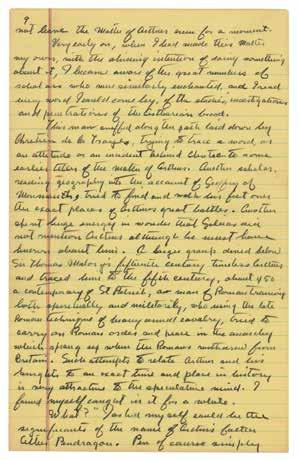 9
not leave the Matter of Arthur even for a moment.
Very early on, when I had made this Matter
my own, with the abiding intention of doing something
about it, I became aware of the great numbers of
scholars who were similarly enchanted, and I read
every word I could come by, of the studies, investigations
and of the Arthurian breed.
This man sniffed along the path laid down by
Chretien de Troyes, trying to trace a word or
an attitude or an incident behind Chretien to some
earlier tellers of the matter of Arthur. Another scholar,
reading geography into the account of Geoffrey of
Monmouth, tried to find and walk his feet over
the exact places of Arthur's great battles. Another
spent huge energy in wonder that Gildas does
not mention Arthur although he must have
known about him. A large group dived below
Sir Thomas Malory's fifteenth century, timeless
and traced him to the fifth century, about 450
a contemporary of St Patrick, a man of Roman training
both spiritually and militarily, who using the late
Roman technique of heavy armed cavalry, tried to
carry on Roman order and peace in the anarchy
which sprang up when the Romans withdrew from
Britain. Such attempts to relate Arthur and his
knights to an exact time and place in history
is very attractive to the speculative mind. I
found myself caught in it for a while.
What? I asked myself could be the
significance of the name of Arthur's father
Uther Pendragon. Pen of course simply